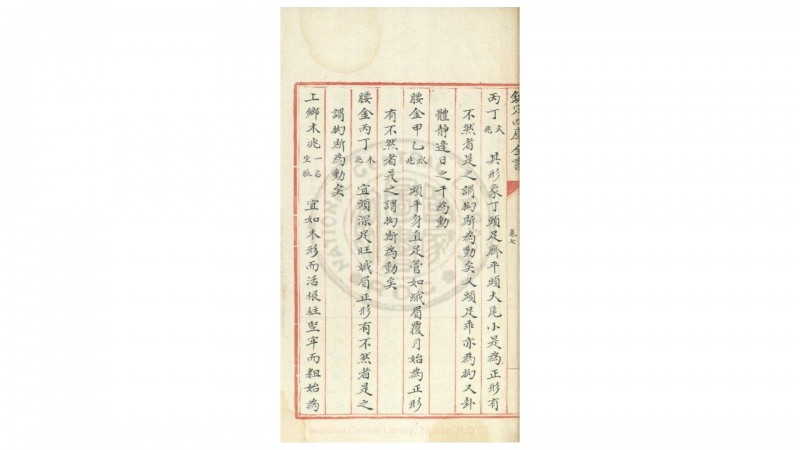 欽定四庫全書
卷七
丙丁火兆 其形象丁頭足齊平頭大尾小是為正形有
不然者是之謂拘斷為動矣又頭足乖亦為拘又卦
體靜逢日之干為動
腰金甲乙水兆 頭平身直足管如蛾眉覆月始為正形
有不然者是之謂拘斷為動矣
腰金丙丁木兆 宜頭深足旺蛾眉正形有不然者是之
謂拘斷為動矣
上鄉木兆一名生狐 宜如木形而活根柱堅牢而麤始為
National Central Library, Taiwan, R.O.C.